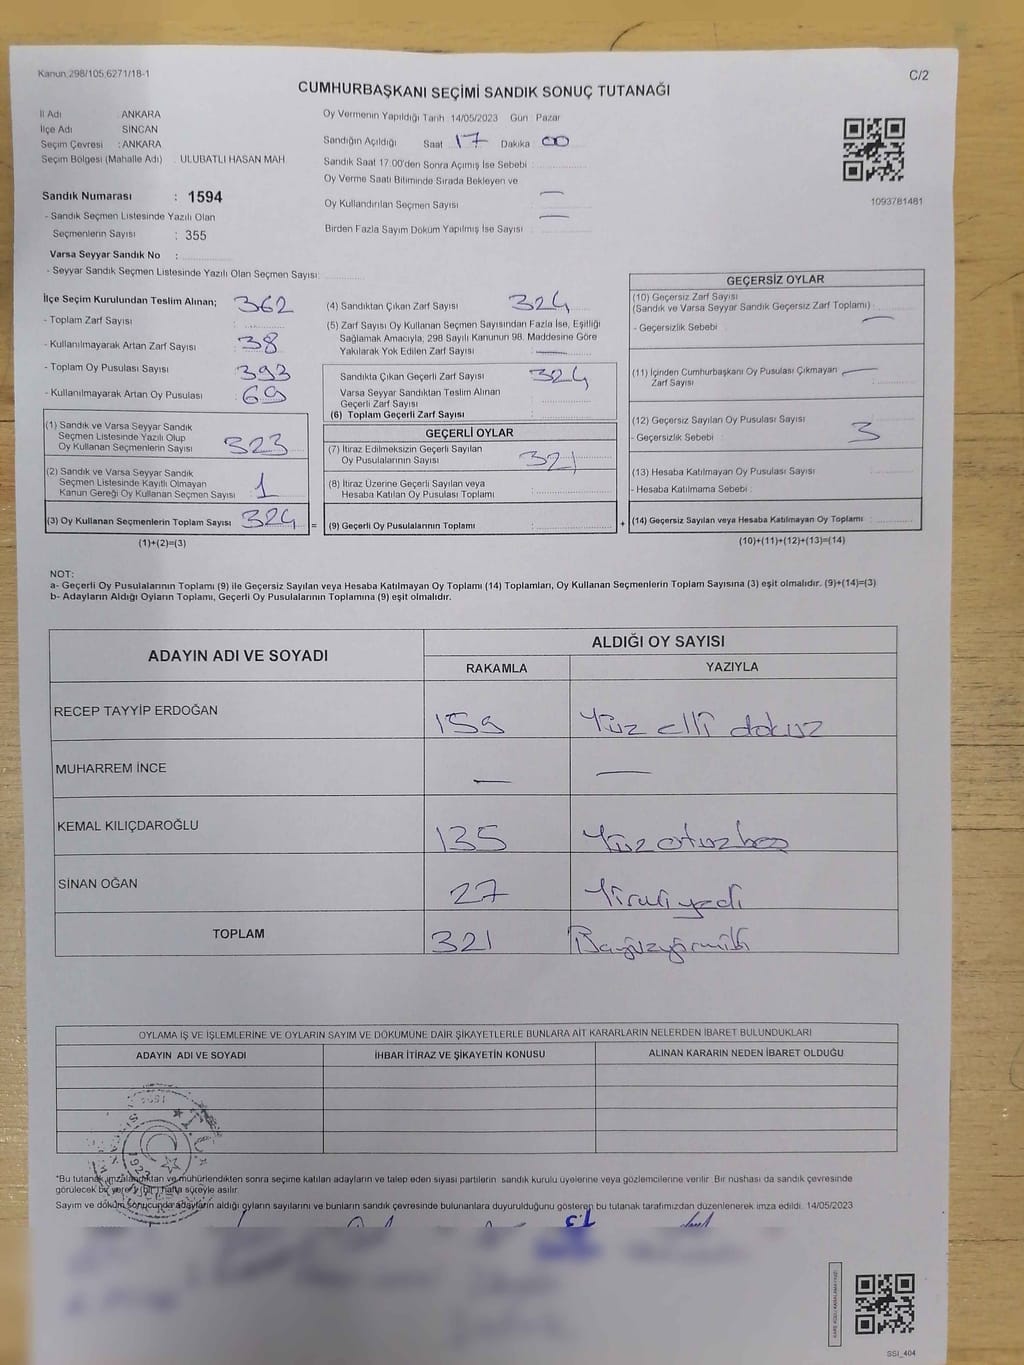 Kanun 298/105,6271/18-1
C/2
CUMHURBAŞKANI SEÇİMİ SANDIK SONUÇ TUTANAĞI
İl Adı : ANKARA
İlçe Adı : SİNCAN
Seçim Çevresi : ANKARA
Seçim Bölgesi (Mahalle Adı) : ULUBATLI HASAN MAH
Oy Vermenin Yapıldığı Tarih 14/05/2023 Gün Pazar
Sandığın Açıldığı Saat 17 Dakika 00
Sandık Saat 17:00'den Sonra Açımış İse Sebebi :
Oy Verme Saati Bitiminde Sırada Bekleyen ve
Oy Kullandırılan Seçmen Sayısı —
Birden Fazla Sayım Döküm Yapılmış İse Sayısı —
1093781481
Sandık Numarası : 1594
- Sandık Seçmen Listesinde Yazılı Olan
Seçmenlerin Sayısı : 355
Varsa Seyyar Sandık No :
- Seyyar Sandık Seçmen Listesinde Yazılı Olan Seçmen Sayısı:
İlçe Seçim Kurulundan Teslim Alınan; 362
- Toplam Zarf Sayısı :
- Kullanılmayarak Artan Zarf Sayısı : 38
- Toplam Oy Pusulası Sayısı : 393
- Kullanılmayarak Artan Oy Pusulası : 69
(1) Sandık ve Varsa Seyyar Sandık
Seçmen Listesinde Yazılı Olup
Oy Kullanan Seçmenlerin Sayısı 323
(2) Sandık ve Varsa Seyyar Sandık
Seçmen Listesinde Kayıtlı Olmayan
Kanun Gereği Oy Kullanan Seçmen Sayısı 1
(3) Oy Kullanan Seçmenlerin Toplam Sayısı 324 =
(1)+(2)=(3)
(4) Sandıktan Çıkan Zarf Sayısı 324
(5) Zarf Sayısı Oy Kullanan Seçmen Sayısından Fazla İse, Eşitliği
Sağlamak Amacıyla, 298 Sayılı Kanunun 98. Maddesine Göre
Yakılarak Yok Edilen Zarf Sayısı : —
Sandıkta Çıkan Geçerli Zarf Sayısı 324
Varsa Seyyar Sandıktan Teslim Alınan
Geçerli Zarf Sayısı :
(6) Toplam Geçerli Zarf Sayısı
GEÇERLİ OYLAR
(7) İtiraz Edilmeksizin Geçerli Sayılan
Oy Pusulalarının Sayısı 321
(8) İtiraz Üzerine Geçerli Sayılan veya
Hesaba Katılan Oy Pusulası Toplamı :
(9) Geçerli Oy Pusulalarının Toplamı : +
GEÇERSİZ OYLAR
(10) Geçersiz Zarf Sayısı
(Sandık ve Varsa Seyyar Sandık Geçersiz Zarf Toplamı) :
- Geçersizlik Sebebi : —
(11) İçinden Cumhurbaşkanı Oy Pusulası Çıkmayan —
Zarf Sayısı :
(12) Geçersiz Sayılan Oy Pusulası Sayısı
- Geçersizlik Sebebi : 3
(13) Hesaba Katılmayan Oy Pusulası Sayısı
- Hesaba Katılmama Sebebi :
(14) Geçersiz Sayılan veya Hesaba Katılmayan Oy Toplamı :
(10)+(11)+(12)+(13)=(14)
NOT:
a- Geçerli Oy Pusulalarının Toplamı (9) ile Geçersiz Sayılan veya Hesaba Katılmayan Oy Toplamı (14) Toplamları, Oy Kullanan Seçmenlerin Toplam Sayısına (3) eşit olmalıdır. (9)+(14)=(3)
b- Adayların Aldığı Oyların Toplamı, Geçerli Oy Pusulalarının Toplamına (9) eşit olmalıdır.
ADAYIN ADI VE SOYADI
ALDIĞI OY SAYISI
RAKAMLA YAZIYLA
RECEP TAYYİP ERDOĞAN 159 Yüz elli dokuz
MUHARREM İNCE — —
KEMAL KILIÇDAROĞLU 135 Yüzotuzbeş
SİNAN OĞAN 27 Yirmiyedi
TOPLAM 321
OYLAMA İŞ VE İŞLEMLERİNE VE OYLARIN SAYIM VE DÖKÜMÜNE DAİR ŞİKAYETLERLE BUNLARA AİT KARARLARIN NELERDEN İBARET BULUNDUKLARI
ADAYIN ADI VE SOYADI İHBAR İTİRAZ VE ŞİKAYETİN KONUSU ALINAN KARARIN NEDEN İBARET OLDUĞU
T.C.
1923
*Bu tutanak imzalandıktan ve mühürlendikten sonra seçime katılan adayların ve talep eden siyasi partilerin sandık kurulu üyelerine veya gözlemcilerine verilir. Bir nüshası da sandık çevresinde
görülecek bir yere 7 (bir) hafta süreyle asılır.
Sayım ve döküm sonucunda adayların aldığı oyların sayılarını ve bunların sandık çevresinde bulunanlara duyurulduğunu gösteren bu tutanak tarafımızdan düzenlenerek imza edildi. 14/05/2023
SSI_404